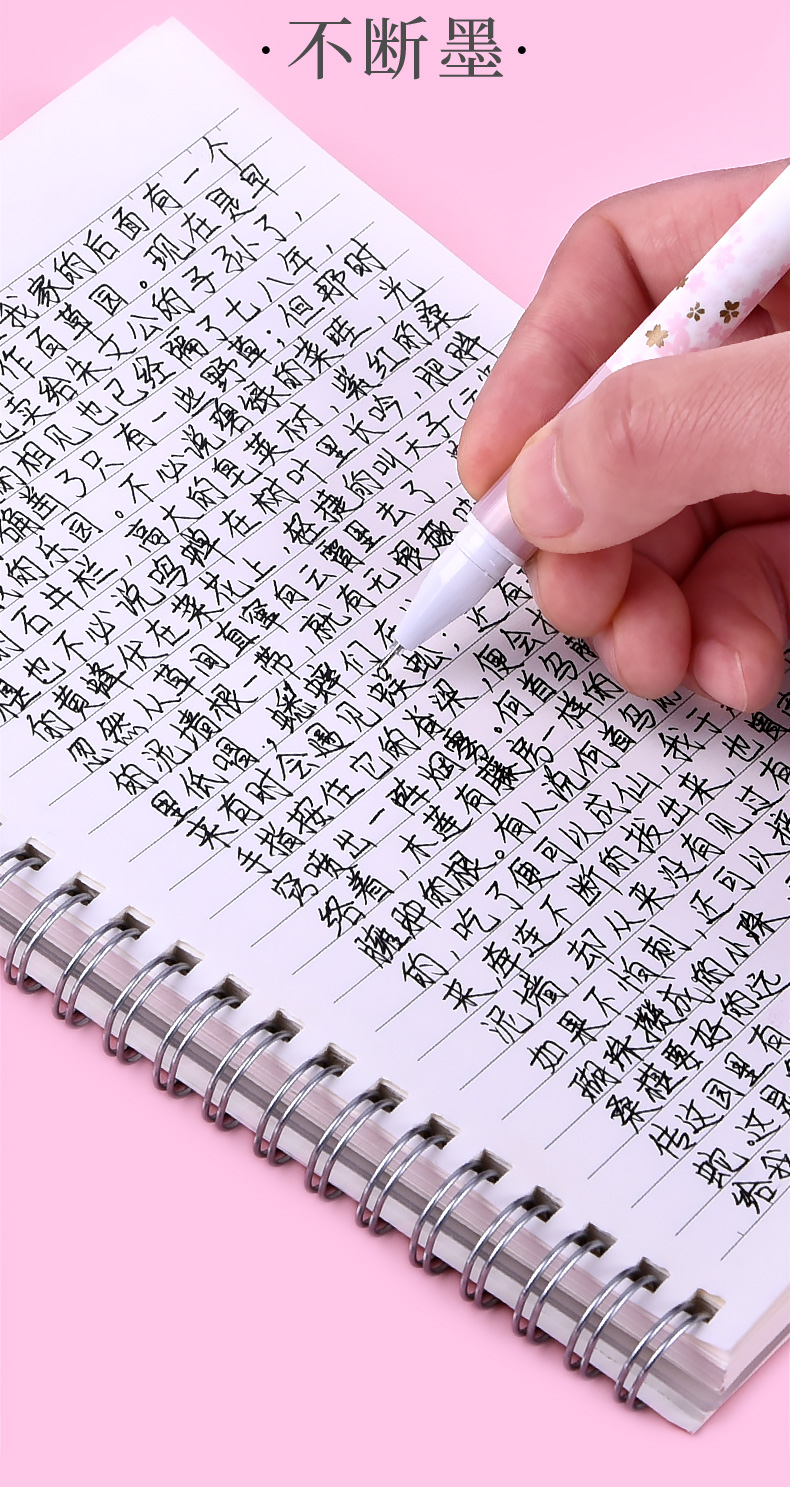 不断墨
我家的后面有一个
作百草园。现在是早
卖给朱文公的子孙了，
相见也已经隔了七八年，
确凿了只有一些野草；但那时
的乐园。不必说碧绿的菜畦，光
石井栏，高大的皂荚树，紫红的桑
也不必说鸣蝉在树叶里长吟，肥胖
的黄蜂伏在菜花上，轻捷的叫天子(
忽然从草间直窜向云霄里去了，
的泥墙根一带，就有无限趣
里低唱，蟋蟀们在
来有时会遇见蜈蚣；还有
手指按住它的脊梁，便会
窍喷出一阵烟雾。何首乌
络着，木莲有莲房一样的
臃肿的根。有人说何首乌
的，吃了便可以成仙，我于
来，牵连不断的拔出来，也
泥墙，却从来没有见过有
如果不怕刺，还可以
瑚珠攒成的小球
桑椹要好的远
传这园里有
蛇。这是
给我